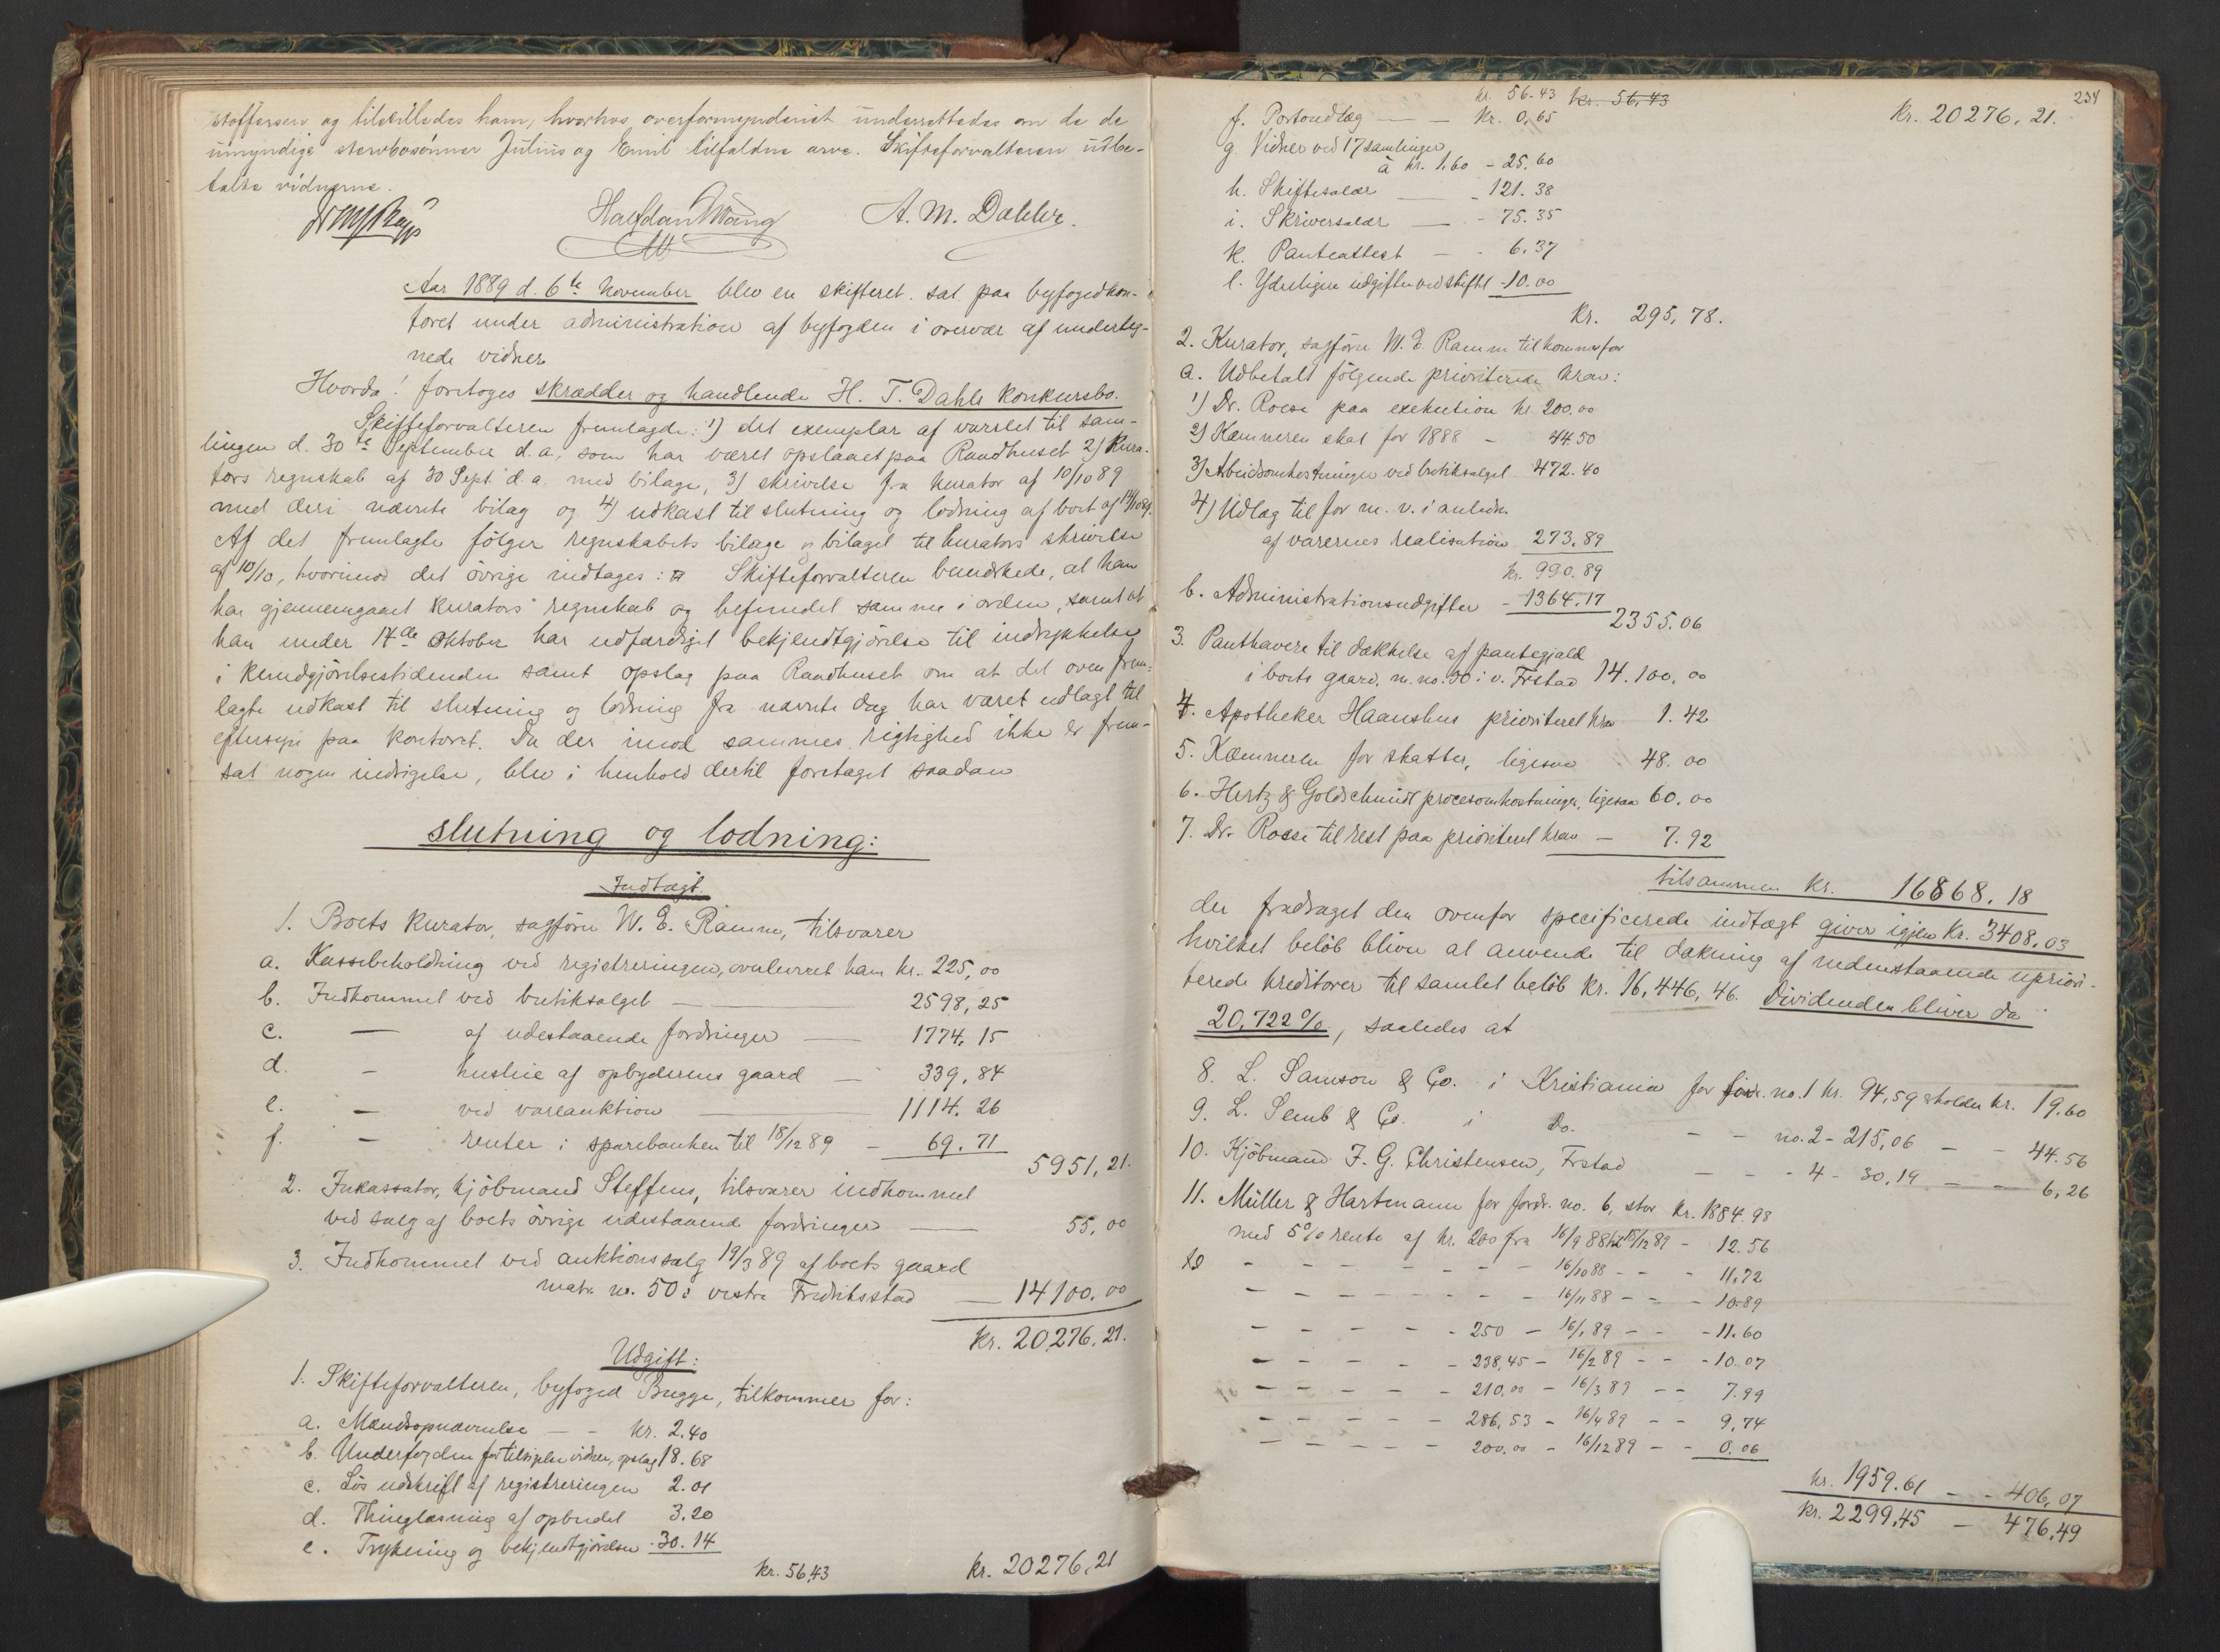 stoffersen og tilstilledes ham, hvorhos overformynderiet underrettedes om de de
umyndige stervbosønner Julius og Emil tilfaldne arve. Skifteforvalteren udbe-
talte vidnerne.
Halfdan Wang A. M. Dahler.
Aar 1889 d. 6te November blev en skifteret sat paa byfogedkon-
toret under administration af byfogden i overvær af underteg-
nede vidner
Hvorda! foretoges skrædder og handlende H. T. Dahls konkursbo.
Skifteforvalteren fremlagde: 1) det exemplar af varslet til sam-
lingen d. 30te September d. a., som har været opslaaet paa Raadhuset 2) Kura-
tors regnskab af 30 Sept. d. a. med bilage, 3) skrivelse fra kurator af 10/10 89
med deri nævnte bilag og 4) udkast til slutning og lodning af boet af 14/10 89.
Af det fremlagte følger regnskabets bilage og bilaget til kurators skrivelse
af 10/10, hvorimod det øvrige indtages: Skifteforvalteren bemærkede, at han
har gjennemgaaet kurators regnskab og befundet samme i orden, samt at
han under 14de Oktober har udfærdiget bekjendtgjørelse til indrykkelse
i Kundgjørelsestidenden samt opslag paa Raadhuset om at det oven frem-
lagte udkast til slutning og lodning fra nævnte dag har været udlagt til
eftersyn paa kontoret. Da der imod sammes rigtighed ikke er frem-
sat nogen indsigelse, blev i henhold dertil foretaget saadan
slutning og lodning:
Indtægt.
1. Boets kurator, sagfører W. E. Ramm, tilsvarer
a. Kassebeholdning ved registreringen, overleveret ham kr. 225,00
b. Indkommet ved butiksalget — 2598,25
c. — af udestaaende fordringer — 1774,15
d. - husleie af opbyderens gaard — 339,84
e. — ved vareauktion — 1114.26
f. - renter i sparebanken til 18/12 89 — 69.71
5951,21.
2. Inkassator, kjøbmand Steffens, tilsvarer indkommet
ved salg af boets øvrige udestaaende fordringer — 55,00
3. Indkommet ved auktionssalg 19/3 89 af boets gaard
matr. no. 50 i vestre Fredriksstad — 14100.00
Kr. 20,276,21.
Udgift:
1. Skifteforvalteren, byfoged Bugge, tilkommer for:
a. Mændsopnævnelse — - kr. 2.40
b. Underfogden for tilsigelse vidner, opslag 18.68
c. Løs udskrift af registreringen 2.01
d. Thinglæsning af opbudet 3.20
e. Trykning og bekjendtgjørelser 30.14
Kr. 56,43 Kr. 20276,21
234
kr. 56.43 kr. 56,43 Kr. 20276,21.
f. Portoudlæg — — kr. 0,65
g. Vidner ved 17 samlinger
à kr. 1.60 - 25.60
h. Skiftesalær — - 121.38
i. Skriversalær — - 75.35
k. Panteattest — - 6.37
l. Yderligere udgifter ved skiftet - 10.00
Kr. 295,78.
2. Kurator, sagfører W. E. Ramm tilkommer for
a. Udbetalt følgende prioriterede krav:
1) Dr. Roese paa exekution kr. 200.00
2) Kæmneren skat for 1888 - 44.50
3) Abeidsomkostninger ved butiksalget 472.40
4) Udlæg til for m. v. i anledn.
af varernes realisation 273,89
kr. 990.89
b. Administrationsudgifter - 1364.17
2355.06
3. Panthavere til dækkelse af pantegjæld
i boets gaard, m. no. 50 i v. Frstad 14.100,00
4. Apotheker Haanshus prioriteret krav 1.42
5. Kæmneren for skatter, ligesaa 48.00
6. Hertz & Goldschmidt procesomkostninger, ligesaa 60.00
7. Dr. Roese til rest paa prioriteret krav — 7.92
tilsammen kr. 16868.18
der fradraget den ovenfor specificerede indtægt giver igjen kr. 3408,03
hvilket beløb bliver at anvende til dækning af nedenstaaende upriori-
terede kreditorer til samlet beløb kr. 16,446,46. Dividenden bliver da
20,722 %, saaledes at
8. L. Samson & Co. i Kristiania for fordr. no. 1 kr. 94,59 erholder kr. 19.60
9. L. Semb & Co. i Do. - - no. 2 - 215,06 — - 44.56
10. Kjøbmand F. G. Christensen, Frstad — - - 4 - 30,19 — — 6,26
11. Müller & Hartmann for fordr. no. 6, stor kr. 1884.98
med 5% rente af kr. 200 fra 16/9 88 til 18/12 89 - 12.56
- - - - - - - 16/10 88 - - - 11.72
- - - - - - - 16/11 88 - - - 10.89
- - - - - 250 - 16/1 89 - - - 11.60
- - - - - 238,45 - 16/2 89 - - - 10.07
- - - - - 210,00 - 16/3 89 - - 7.99
- - - - - 286,53 - 16/4 89 - - 9,74
- - - - - 200.00 - 16/12 89 - - 0.06
kr. 1959.61 - - 406,07
Kr. 2299,45 — 476,49